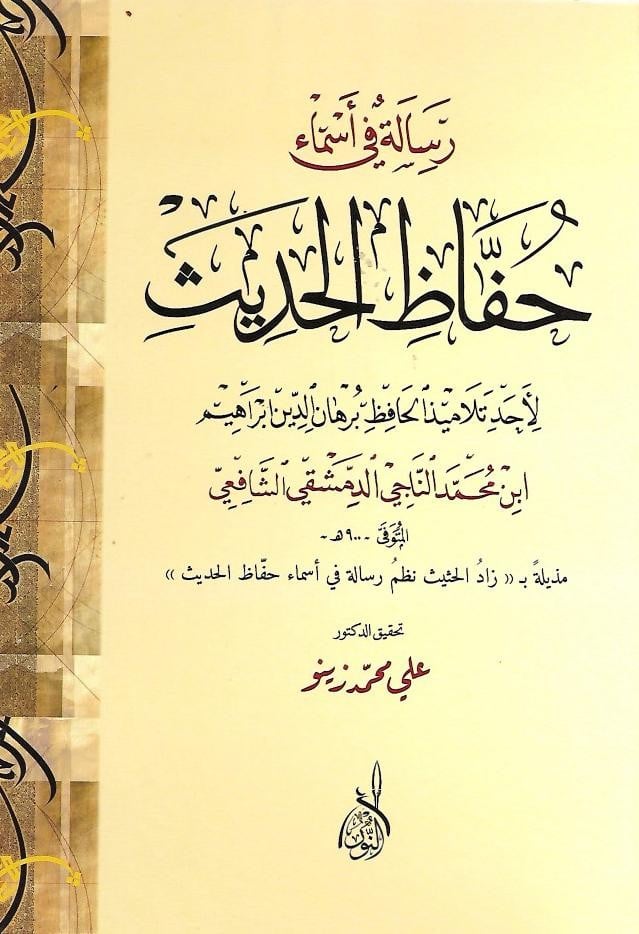 رِسَالَةٌ فِي أَسْمَاءِ
حُفَّاظِ الْحَدِيثِ
لِأَحَدِ تَلَامِيْذِ الْحَافِظِ بُرْهَانِ الدِّيْنِ ابْرَاهِيْم
ابْنِ مُحَمَّد النَّاجِيّ الدِّمَشْقِيِّ الشَّافِعِيِّ
الْمُتَوَفَّى - ٩٠٠ هـ -
مذيلةً بـ « زادُ الحثيث نظمُ رسالة في أسماء حفّاظ الحديث »
تحقيق الدكتور
علي محمّد زينو
النُّور